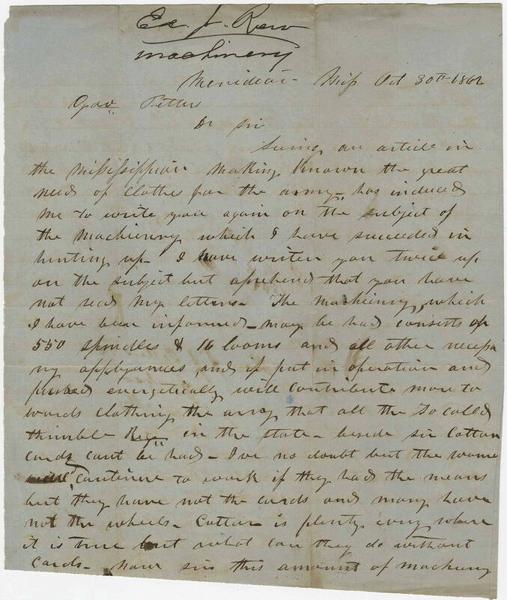 Ex. J. Rew
machinery
Meridian - Miss Oct 30th 1862
Gov Pettus
Dr Sir
Seeing an article in
the Mississippian making known the great
need of clothes for the army - has induced
me to write you again on the subject of
the Machinery which I have succeeded in
hunting up - I have written you twice up
on the subject but aprehend that you have
not recd my letters - The Machinery, which
I have been informed - may be had consists of
550 spindles & 16 looms and all other necessa
ry appliances and if put in operation and
pushed energetically will contribute more to
wards clothing the army that all the so caled
thimble Regts in the state - beside sir Cotton
cards cant be had - I've no doubt but the women
continue to work if they had the means
but they have not the cards and many have
not the wheels - Cotton is plenty every where
it is true but what can they do without
Cards - Now sir this amount of machinery